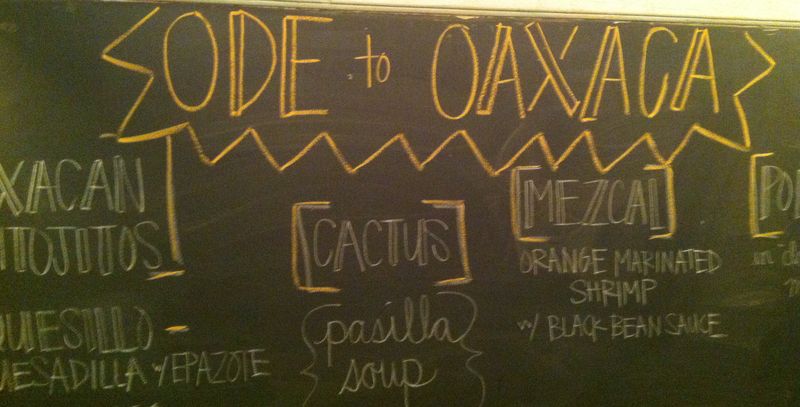 ODE to OAXACA
XACAN
ITOJITOS
UIESILLO -
UESADILLA w/EPAZOTE
[CACTUS]
{pasilla
soup}
[MEZCAL]
ORANGE MARINATED
SHRIMP
w/ BLACK BEAN SAUCE
[PO